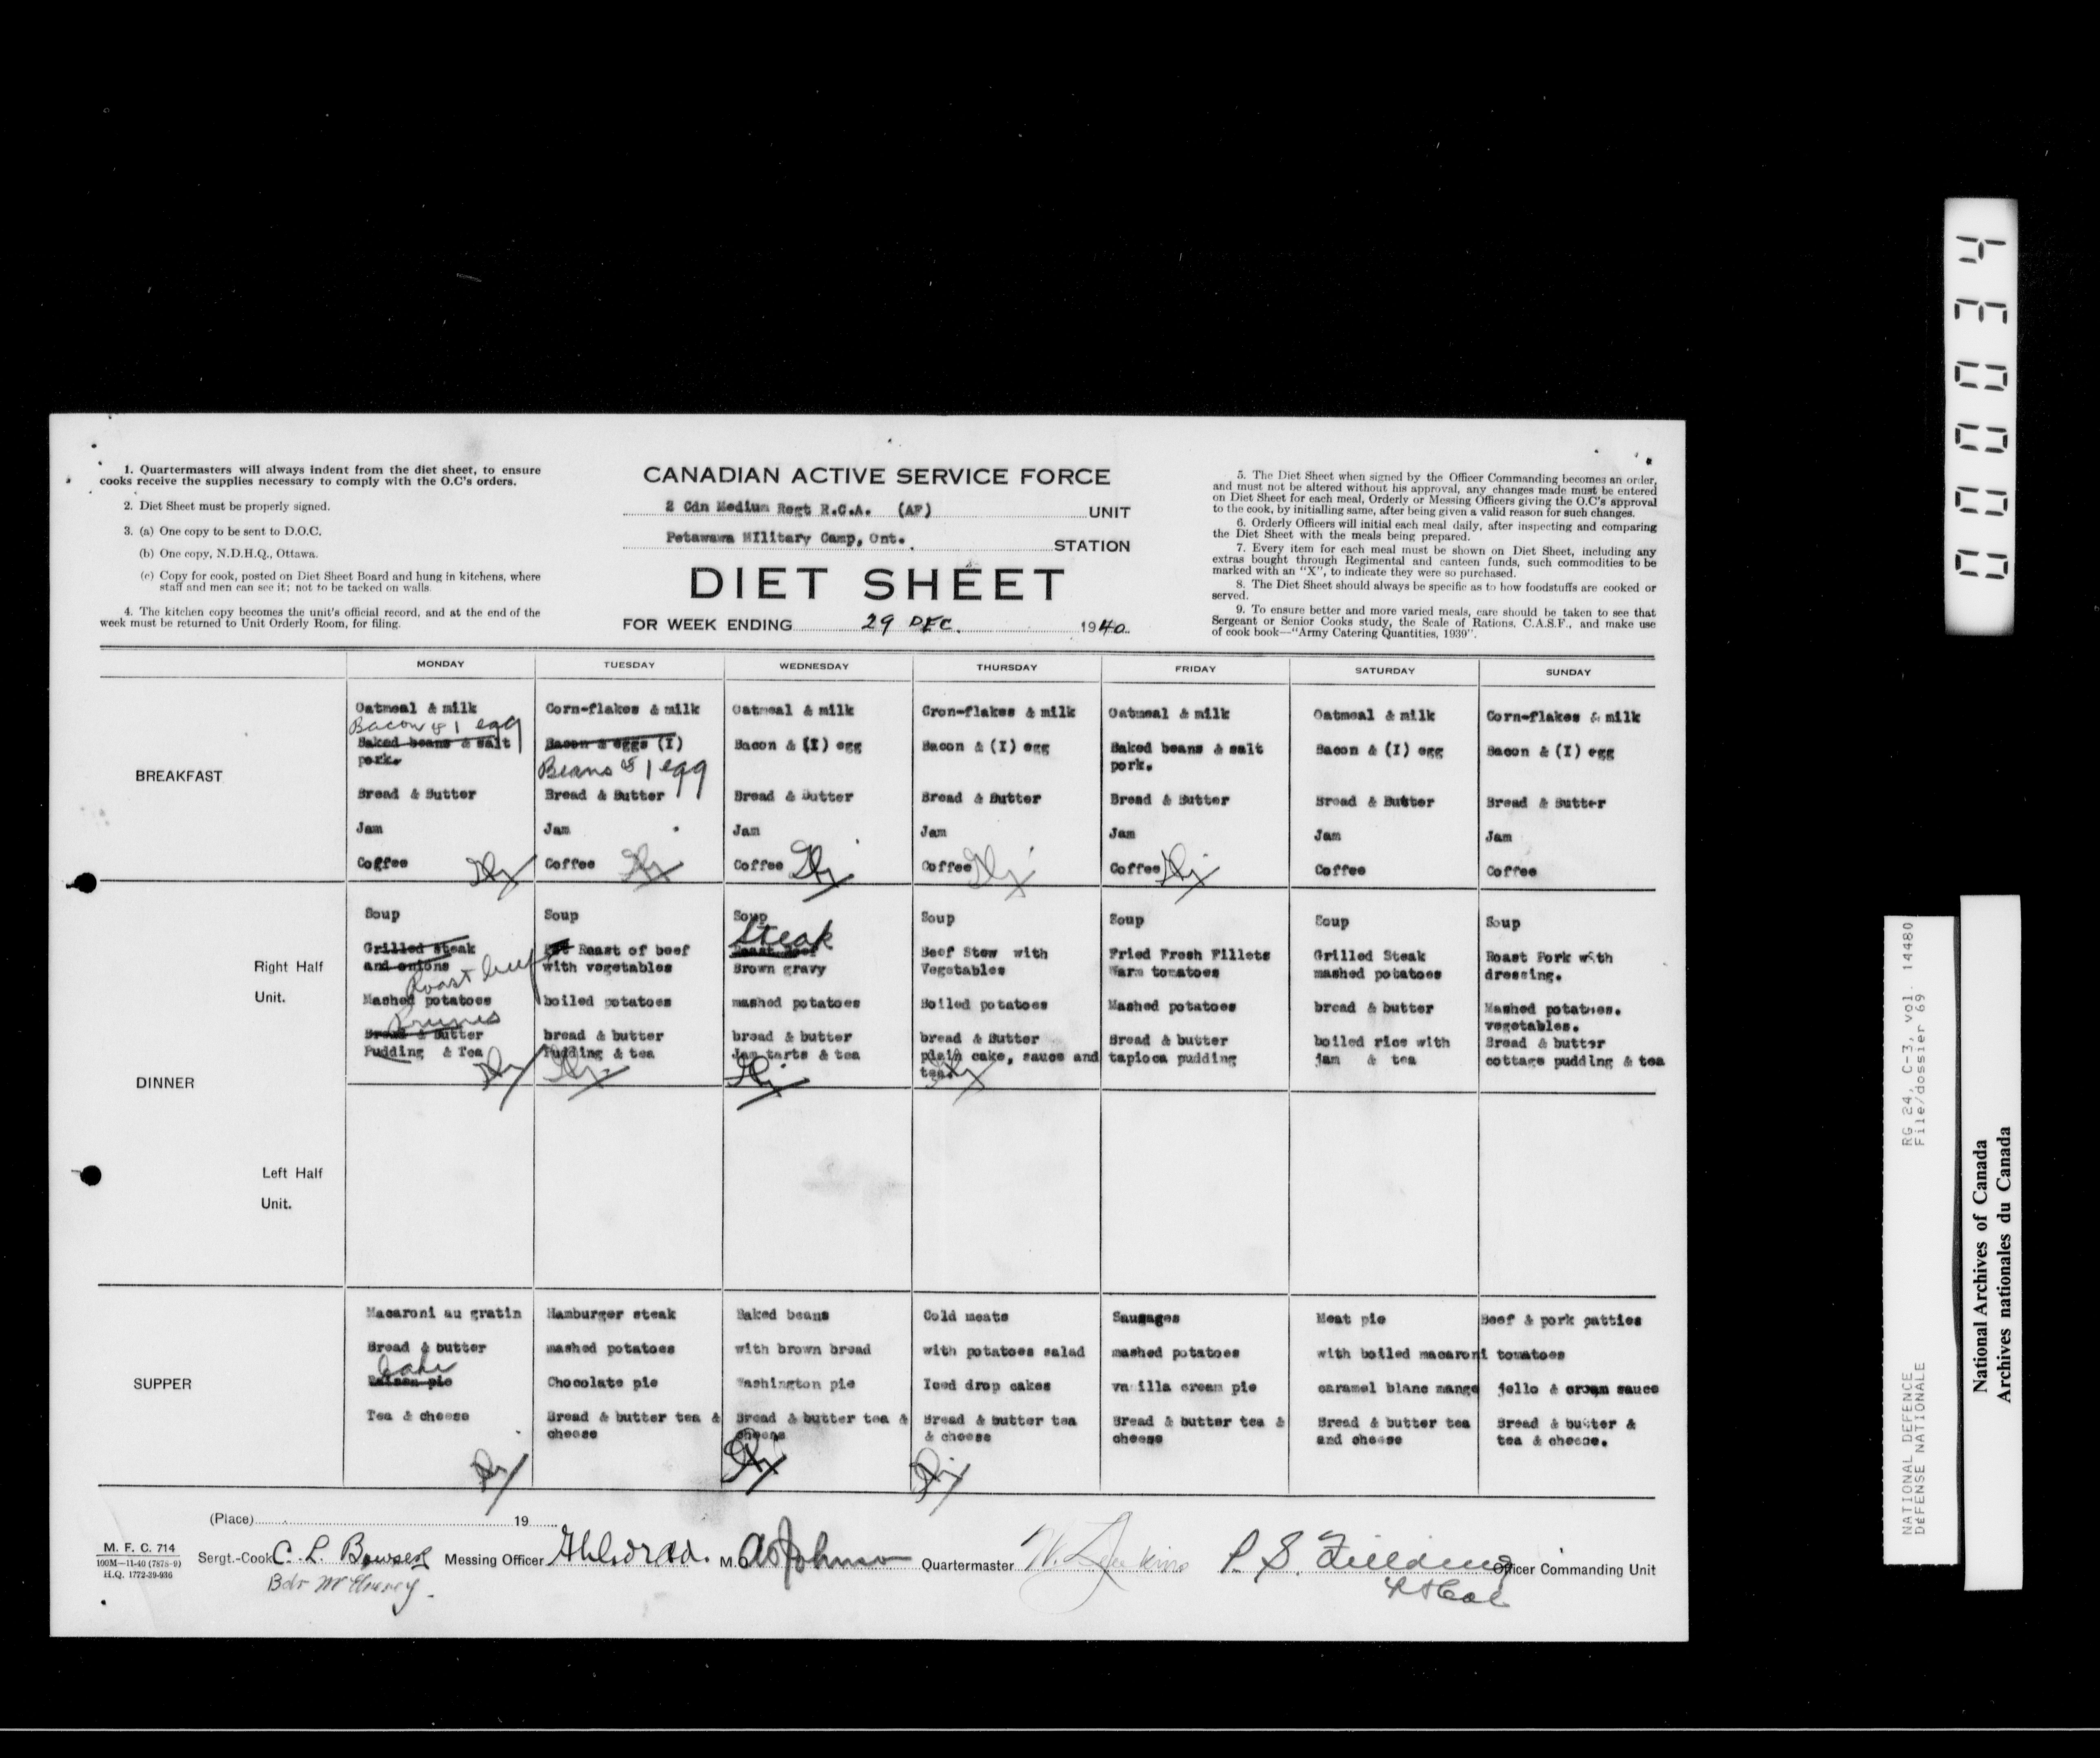 1. Quartermasters will always indent from the diet sheet, to ensure
cooks receive the supplies necessary to comply with the O.C's orders.
2. Diet Sheet must be properly signed.
3. (a) One copy to be sent to D.O.C.
(b) One copy, N.D.H.Q., Ottawa.
(c) Copy for cook, posted on Diet Sheet Board and hung in kitchens, where
staff and men can see it; not to be tacked on walls.
4. The kitchen copy becomes the unit's official record, and at the end of the
week must be returned to Unit Orderly Room, for filing.
CANADIAN ACTIVE SERVICE FORCE
2 Cdn Medium Regt R.C.A. (AF) UNIT
Petawawa MIlitary Camp, Ont. STATION
DIET SHEET
FOR WEEK ENDING 29 DEC. 1940
5. The Diet Sheet when signed by the Officer Commanding becomes an order,
and must not be altered without his approval, any changes made must be entered
on Diet Sheet for each meal, Orderly or Messing Officers giving the O.C's approval
to the cook, by initialling same, after being given a valid reason for such changes.
6. Orderly Officers will initial each meal daily, after inspecting and comparing
the Diet Sheet with the meals being prepared.
7. Every item for each meal must be shown on Diet Sheet, including any
extras bought through Regimental and canteen funds, such commodities to be
marked with an "X", to indicate they were so purchased.
8. The Diet Sheet should always be specific as to how foodstuffs are cooked or
served.
9. To ensure better and more varied meals, care should be taken to see that
Sergeant or Senior Cooks study, the Scale of Rations, C.A.S.F., and make use
of cook book—"Army Catering Quantities, 1939".
MONDAY TUESDAY WEDNESDAY THURSDAY FRIDAY SATURDAY SUNDAY
BREAKFAST
Oatmeal & milk
Bacon & 1 egg
Baked beans & salt
pork.
Bread & Butter
Jam
Coffee
Corn-flakes & milk
Bacon & eggs (I)
Beans & 1 egg
Bread & Butter
Jam
Coffee
Oatmeal & milk
Bacon & (I) egg
Bread & Butter
Jam
Coffee
Cron-flakes & milk
Bacon & (I) egg
Bread & Butter
Jam
Coffee
Oatmeal & milk
Baked beans & salt
pork.
Bread & Butter
Jam
Coffee
Oatmeal & milk
Bacon & (I) egg
Bread & Butter
Jam
Coffee
Corn-flakes & milk
Bacon & (I) egg
Bread & Butter
Jam
Coffee
DINNER
Right Half
Unit.
Soup
Grilled steak
and onions
Roast beef
Mashed potatoes
Prunes
Bread & Butter
Pudding & Tea
Soup
Roast of beef
with vegetables
boiled potatoes
bread & butter
Pudding & tea
Soup
Steak
Roast Beef
Brown gravy
mashed potatoes
bread & butter
Jam tarts & tea
Soup
Beef Stew with
Vegetables
Boiled potatoes
bread & Butter
plain cake, sauce and
tea.
Soup
Fried Fresh Fillets
Warm tomatoes
Mashed potatoes
Bread & butter
tapioca pudding
Soup
Grilled Steak
mashed potatoes
bread & butter
boiled rice with
jam & tea
Soup
Roast Pork with
dressing.
Mashed potatoes.
vegetables.
Bread & butter
cottage pudding & tea
Left Half
Unit.
SUPPER
Macaroni au gratin
Bread & butter
Cake
Raisen pie
Tea & cheese
Hamburger steak
mashed potatoes
Chocolate pie
Bread & butter tea &
cheese
Baked beans
with brown bread
Washington pie
Bread & butter tea &
cheese
Cold meats
with potatoes salad
Iced drop cakes
Bread & butter tea
& cheese
Sausages
mashed potatoes
vanilla cream pie
Bread & butter tea &
cheese
Meat pie
with boiled macaroni
caramel blanc mange
Bread & butter tea
and cheese
Beef & pork patties
tomatoes
jello & cream sauce
Bread & butter &
tea & cheese.
(Place) 19
M. F. C. 714
100M—11-40 (7875-9)
H.Q. 1772-39-936
Sergt.-Cook C. L. Bowser Messing Officer M.O. Johnson Quartermaster W. Jenkins P. S. Fielding Officer Commanding Unit
Bdr
Lt Col
00034
RG 24, C-3, vol. 14480
File/dossier 69
NATIONAL DEFENCE
DÉFENSE NATIONALE
National Archives of Canada
Archives nationales du Canada